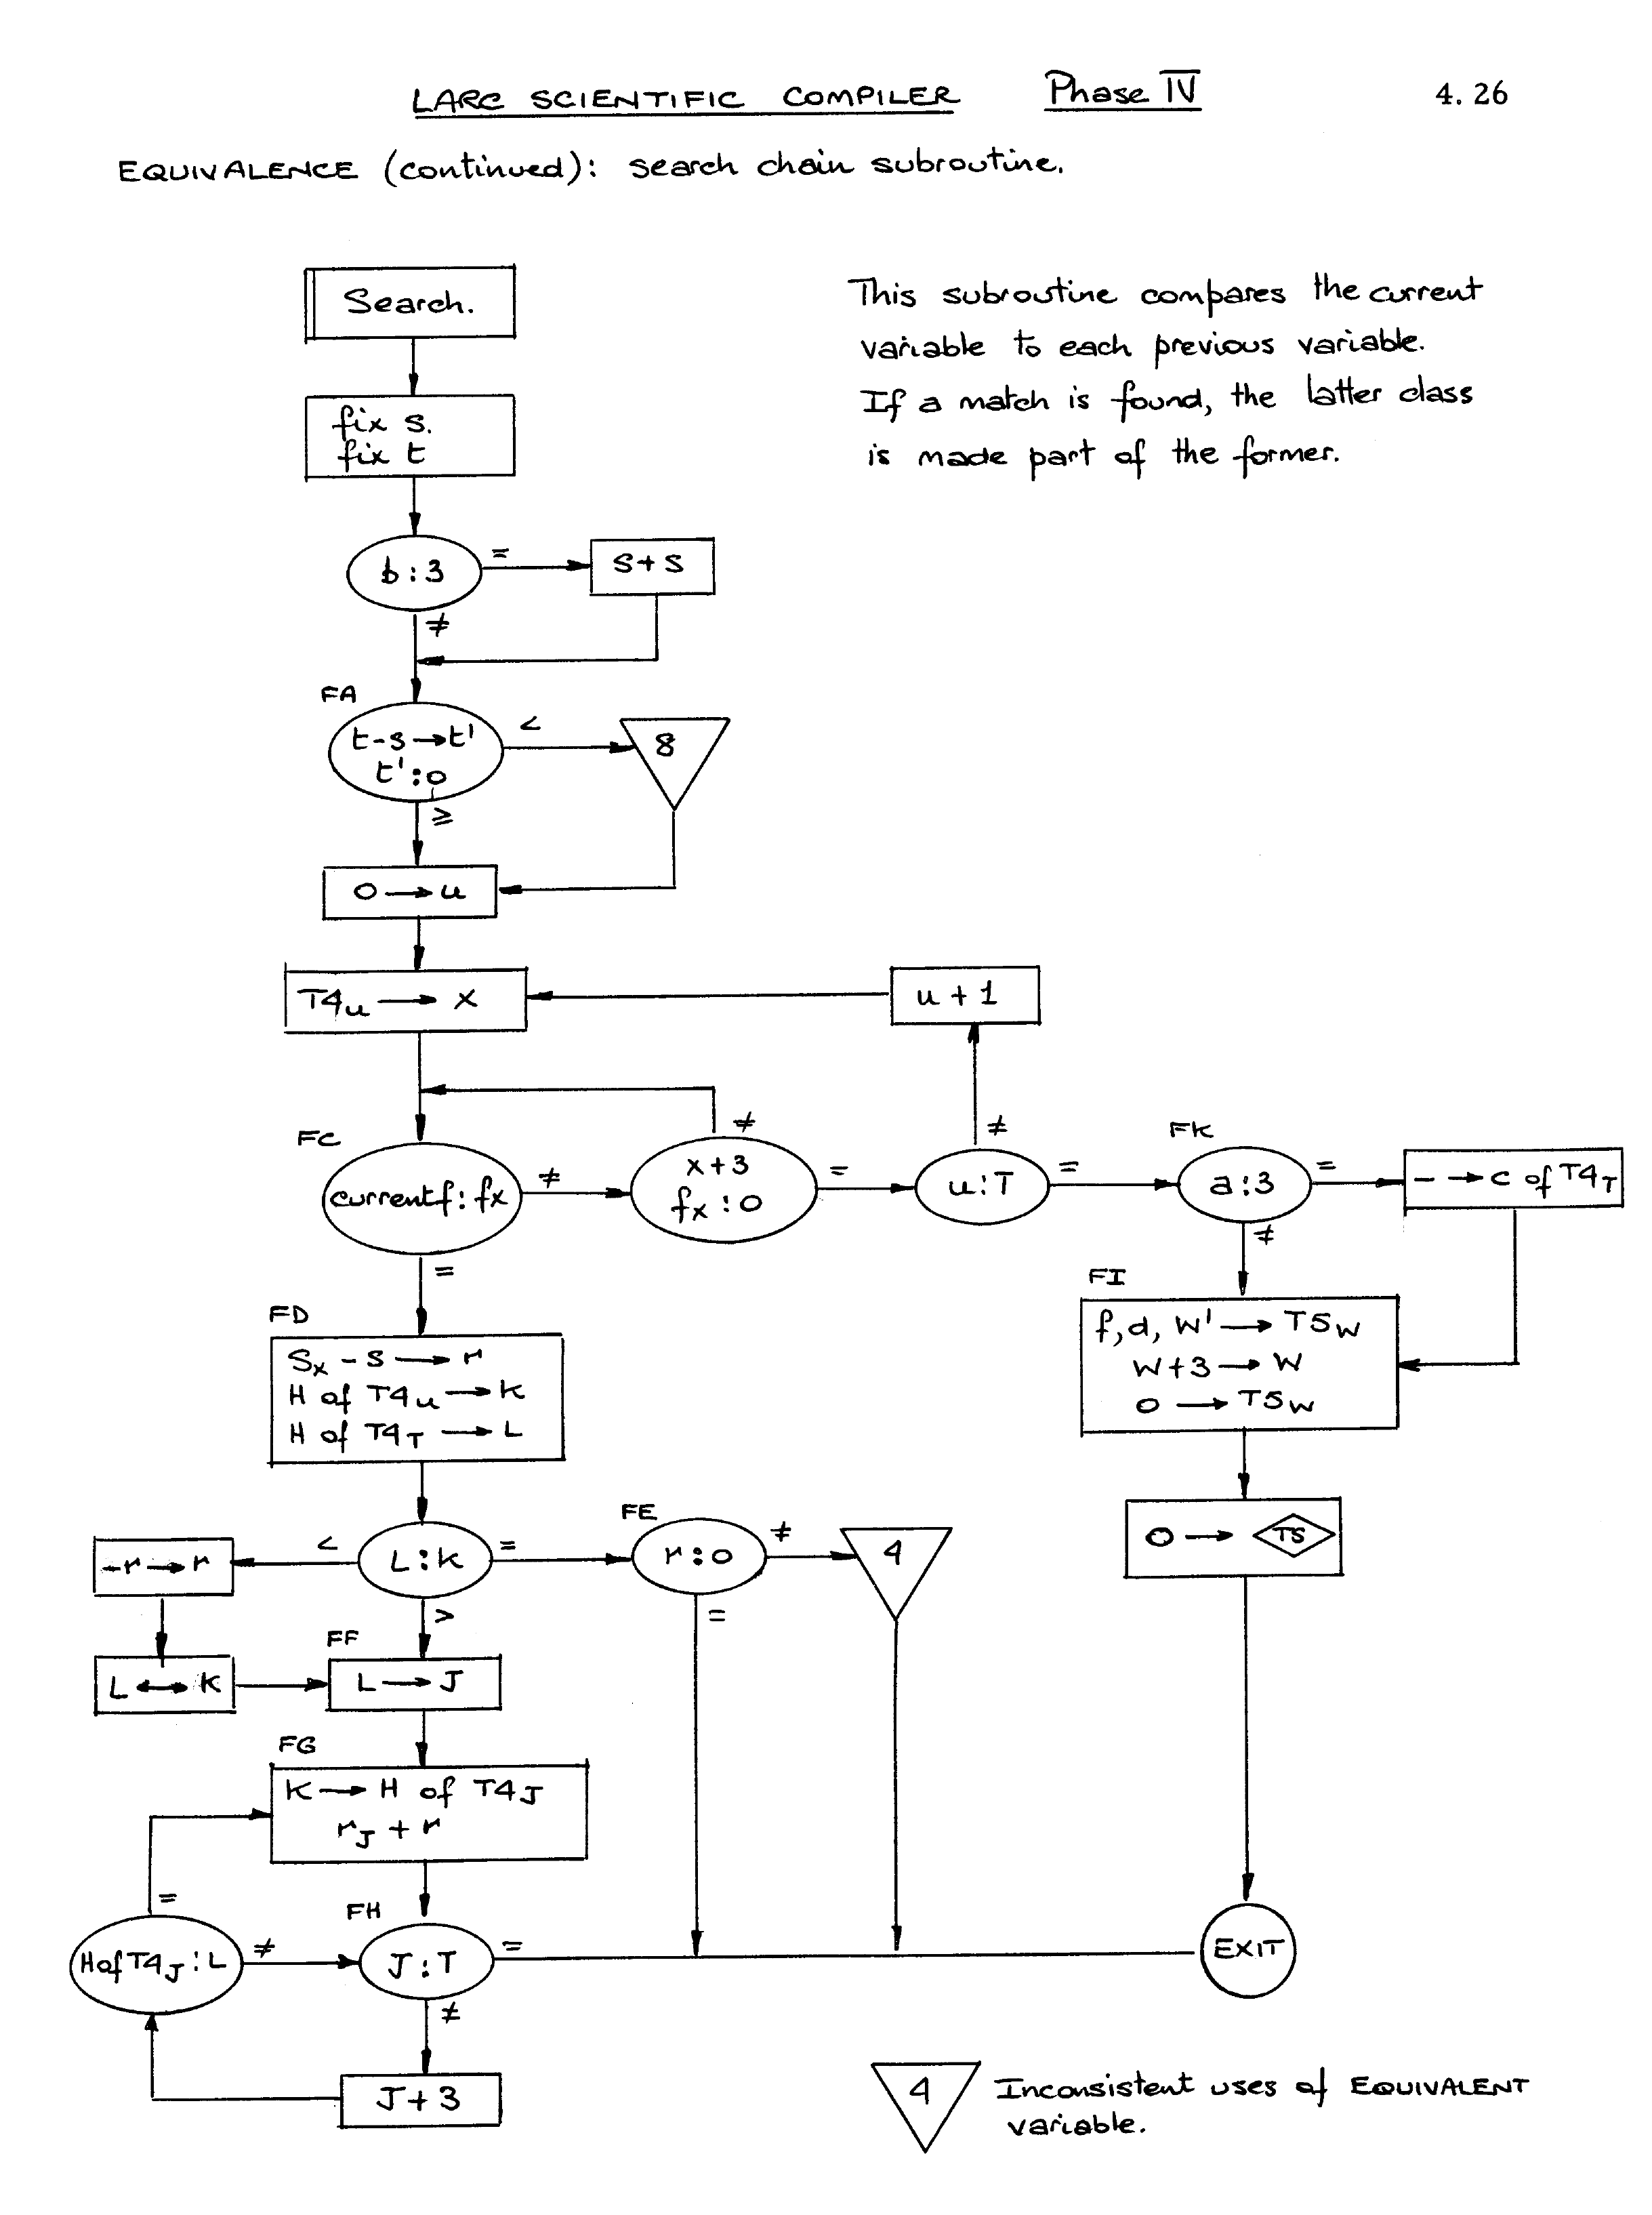 LARC SCIENTIFIC COMPILER Phase IV 4.26
EQUIVALENCE (continued): search chain subroutine.
Search.
This subroutine compares the current
variable to each previous variable.
If a match is found, the latter class
is made part of the former.
fix s.
fix t
b : 3
=
s + s
≠
FA
t - s → t'
t' : 0
<
8
≥
0 → u
T4u → x
u + 1
≠
FC
current f : fx
≠
x + 3
fx : 0
≠
=
u : T
=
FK
a : 3
=
- → c of T4T
≠
=
FI
f, d, W' → T5W
W + 3 → W
0 → T5W
FD
Sx - s → r
H of T4u → K
H of T4T → L
0 → T5
-r → r
<
L : K
=
FE
r : 0
≠
4
>
=
FF
L ↔ K
L → J
FG
K → H of T4J
rJ + r
=
FH
H of T4J : L
≠
J : T
=
EXIT
≠
J + 3
4
Inconsistent uses of EQUIVALENT
variable.